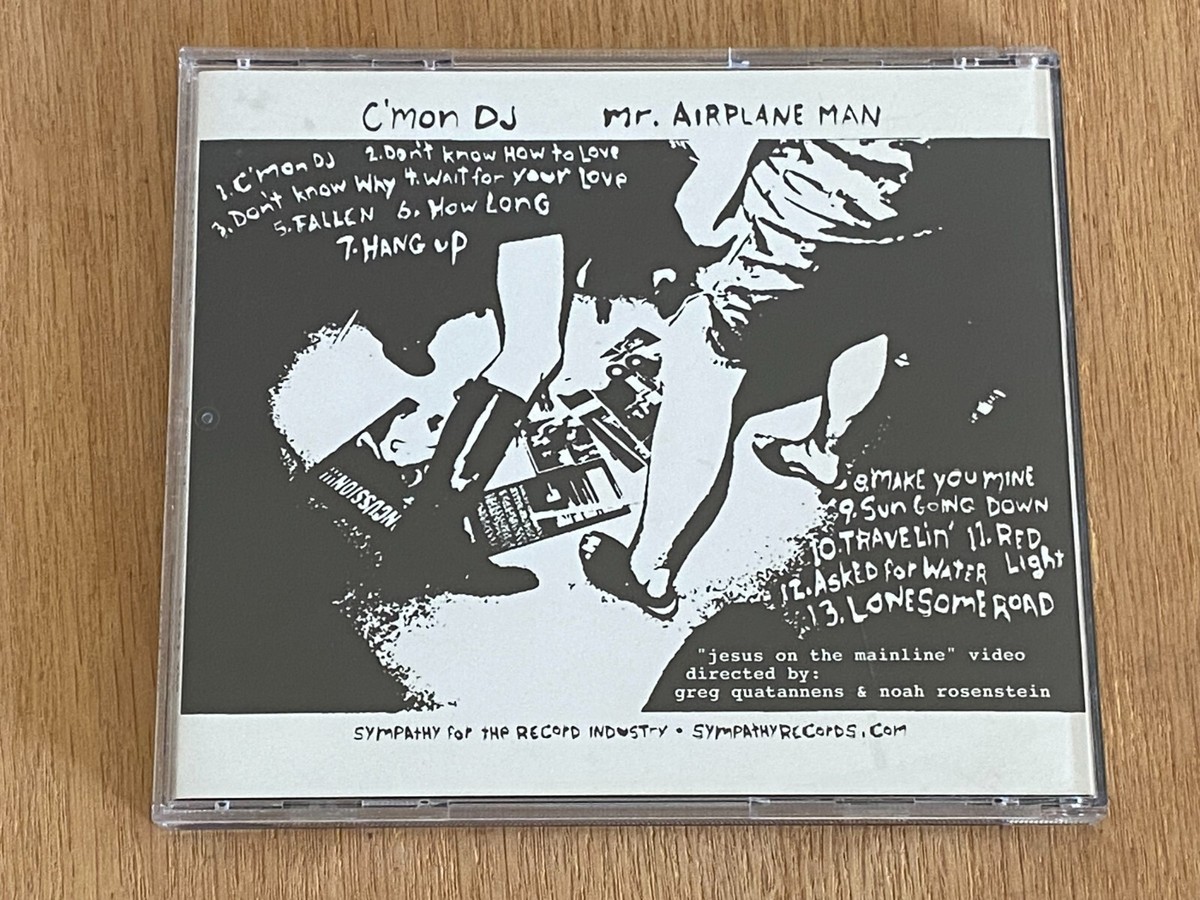 C'mon DJ mr. AIRPLANE MAN
1. C'mon DJ 2. Don't know How to Love
3. Don't know Why 4. Wait for your Love
5. FALLEN 6. How Long
7. HANG UP
8. MAKE YOU MINE
9. Sun GOING DOWN
10. TRAVELin' 11. RED
Light
12. ASKED for WATER
13. LONESOME ROAD
"jesus on the mainline" video
directed by:
greg quatannens & noah rosenstein
SYMPATHY for tHe RECORD INDUSTry • SYMPATHYRECORDS.COM